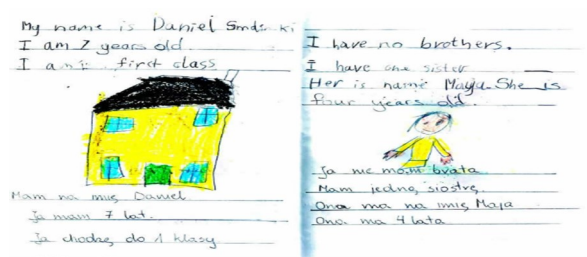 My name is Daniel
I am 7 years old.
I am in first class
Mam na imię Daniel
Ja mam 7 lat.
Ja chodzę do 1 klasy
I have no brothers.
I have one sister
Her is name Maya She is
four years old.
Ja nie mam brata
Mam jedną siostrę
Ona ma na imię Maja
Ona ma 4 lata